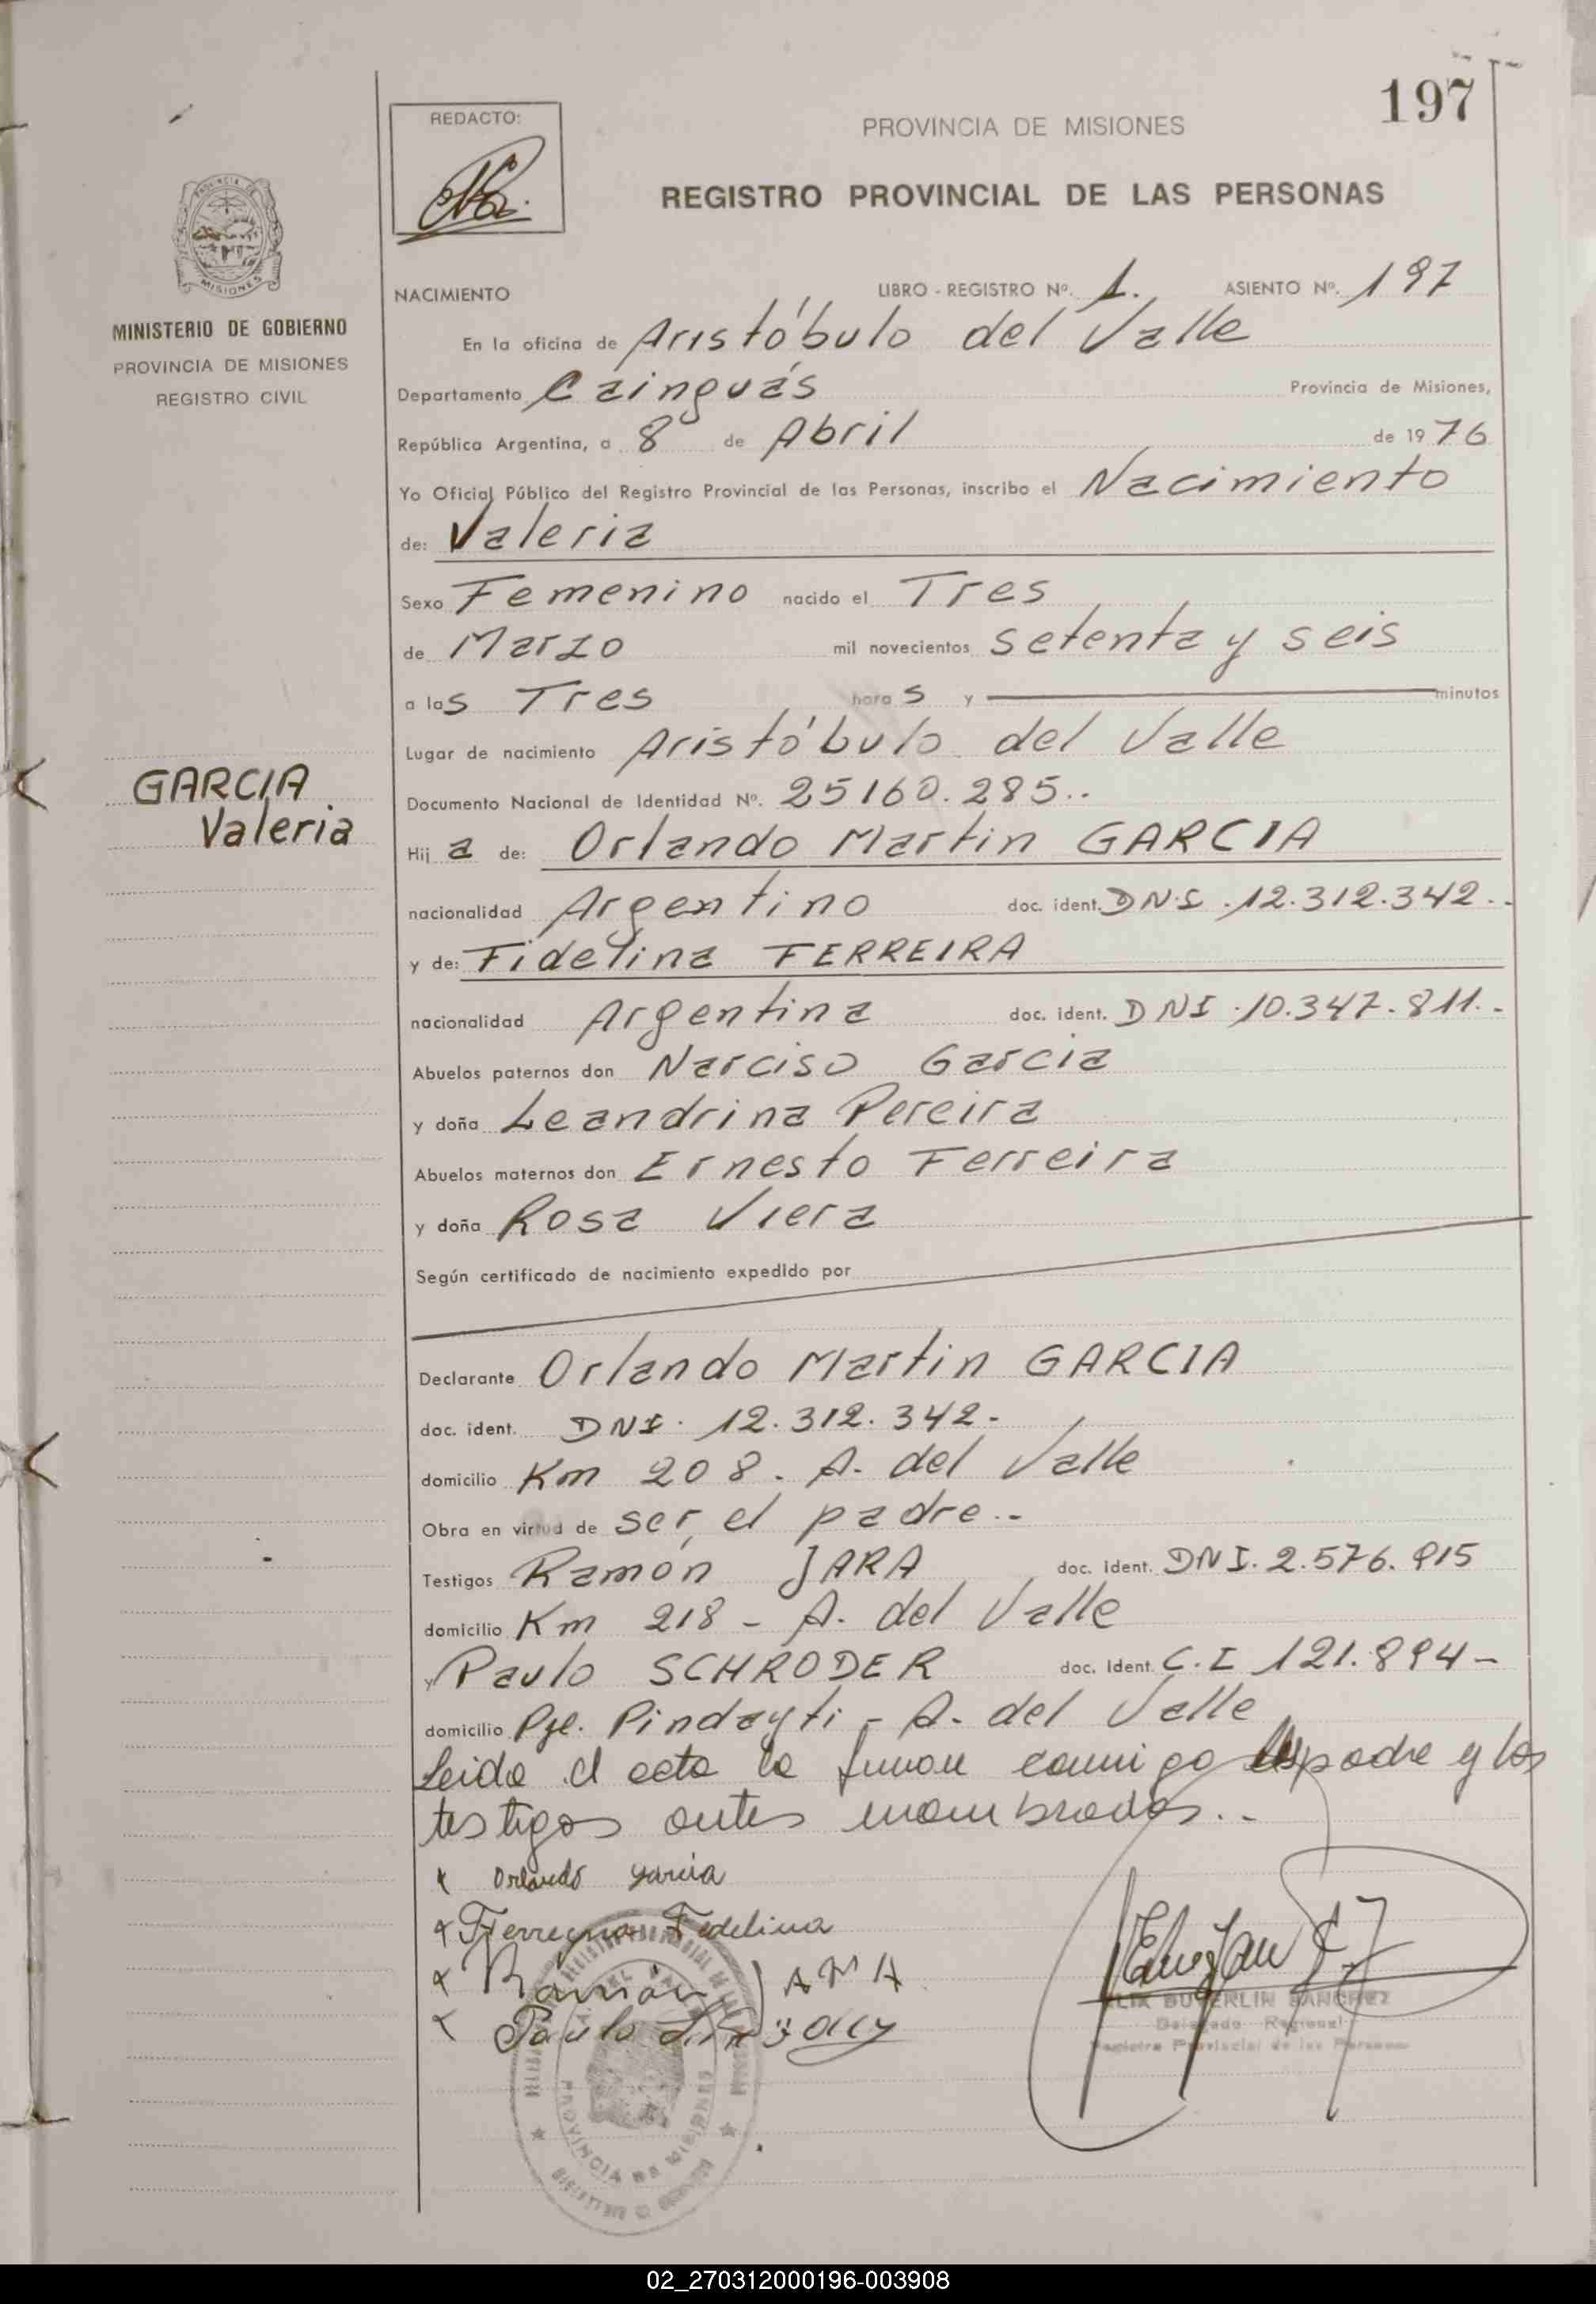 197
REDACTO:
PROVINCIA DE MISIONES
REGISTRO PROVINCIAL DE LAS PERSONAS
PROVINCIA DE
MISIONES
MINISTERIO DE GOBIERNO
PROVINCIA DE MISIONES
REGISTRO CIVIL
GARCIA
Valeria
NACIMIENTO LIBRO - REGISTRO Nº. 1. ASIENTO Nº. 197
En la oficina de Aristóbulo del Valle
Departamento Cainguás Provincia de Misiones,
República Argentina, a 8 de Abril de 1976
Yo Oficial Público del Registro Provincial de las Personas, inscribo el Nacimiento
de: Valeria
Sexo Femenino nacido el Tres
de Marzo mil novecientos setenta y seis
a las Tres horas y minutos
Lugar de nacimiento Aristóbulo del Valle
Documento Nacional de Identidad Nº. 25160.285..
Hija de: Orlando Martin GARCIA
nacionalidad Argentino doc. ident. DNI .12.312.342.-
y de: Fidelina FERREIRA
nacionalidad Argentina doc. ident. DNI .10.347.811.-
Abuelos paternos don Narciso Garcia
y doña Leandrina Pereira
Abuelos maternos don Ernesto Ferreira
y doña Rosa Viera
Según certificado de nacimiento expedido por
Declarante Orlando Martin GARCIA
doc. ident. DNI. 12.312.342-
domicilio Km 208. A. del Valle
Obra en virtud de ser, el padre.-
Testigos Ramón JARA doc. ident. DNI. 2.576.915
domicilio Km 218 - A. del Valle
y Paulo SCHRODER doc. Ident. C.I 121.894-
domicilio Pje. Pindayti - A. del Valle
Leida el acta la firman conmigo padre y los
testigos antes nombrados..-
x Orlando Garcia
x Fedelina
x Ramón JARA
x Paulo
FELIX BUVERLIN SANCHEZ
Delegado Regional
Registro Provincial de las Personas
PROVINCIA DE MISIONES
02_270312000196-003908